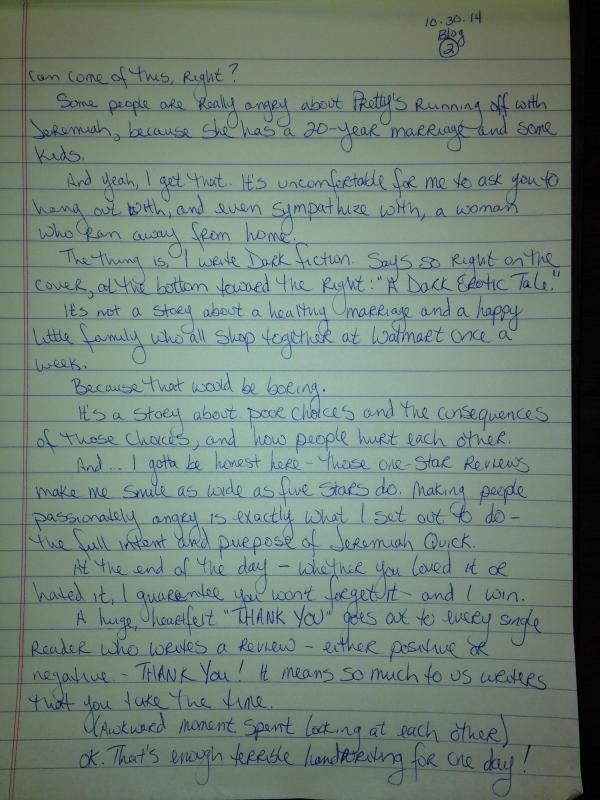 10.30.14
Blog
2
can come of this, right?
Some people are really angry about Pretty's running off with
Jeremiah, because she has a 20-year marriage and some
kids.
And yeah, I get that. It's uncomfortable for me to ask you to
hang out with, and even sympathize with, a woman
who ran away from home.
The thing is, I write Dark fiction. Says so right on the
cover, at the bottom toward the right: "A Dark Erotic Tale."
It's not a story about a healthy marriage and a happy
little family who all shop together at Walmart once a
week.
Because that would be boring.
It's a story about poor choices and the consequences
of those choices, and how people hurt each other.
And... I gotta be honest here - those one-star reviews
make me smile as wide as five stars do. Making people
passionately angry is exactly what I set out to do -
the full intent and purpose of Jeremiah Quick.
At the end of the day - whether you loved it or
hated it, I guarantee you won't forget it - and I win.
A huge, heartfelt "THANK YOU" goes out to every single
reader who writes a review - either positive or
negative - THANK YOU! It means so much to us writers
that you take the time.
(Awkward moment spent looking at each other)
OK. That's enough terrible handwriting for one day!